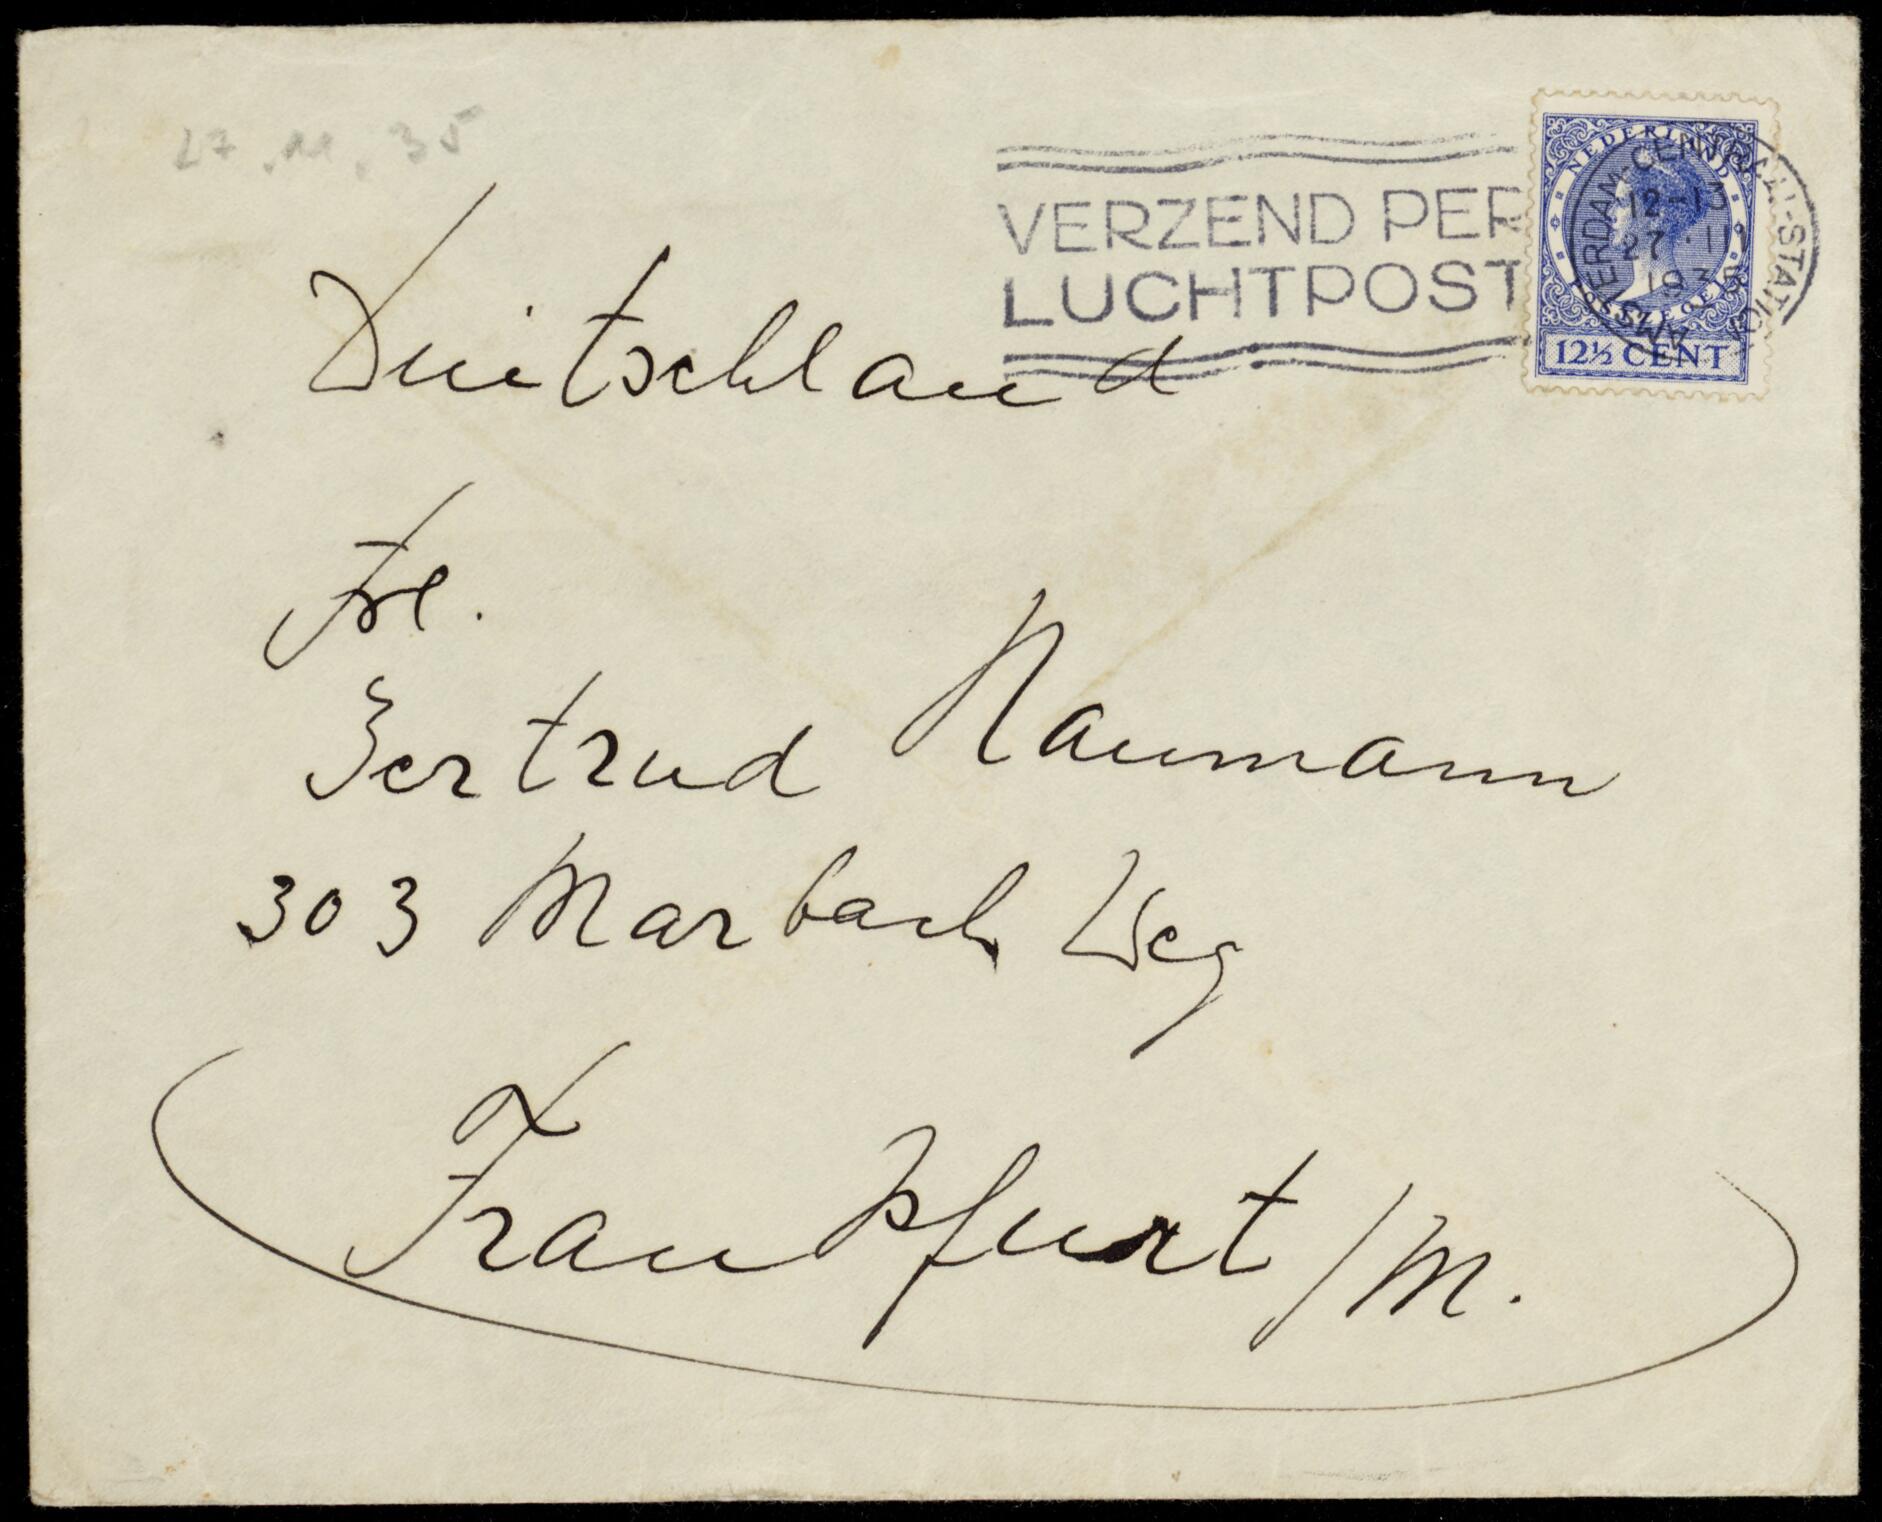 27.11.35
VERZEND PER
LUCHTPOST
NEDERLAND
POSTZEGEL
12½ CENT
AMSTERDAM-CENTRAAL-STATION
12-13
27.11
1935
Duitschland
Frl.
Gertrud Naumann
303 Marbach Weg
Frankfurt/M.